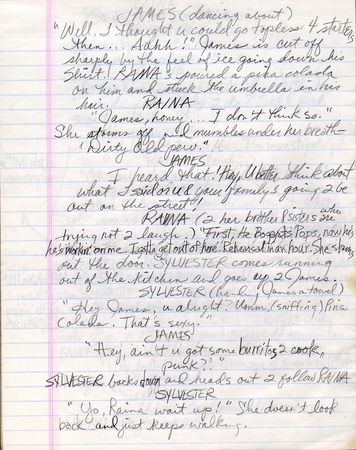 JAMES (dancing about)
"Well, I thought u could go topless 4 starters
then... Aahh!" James is cut off
sharply by the feel of ice going down his
shirt. RAINA's poured a pina colada
on him and stuck the umbrella in his
hair. RAINA
"James, honey... I don't think so."
She storms off and mumbles under her breath-
"Dirty old perv."
JAMES
I heard that. "Hey, U better think about
what I said or u & your family's going 2 be
out on the street!"
RAINA (2 her brother & sisters who
trying not 2 laugh.) "First, he Pops, now he's
he's workin' on me. I gotta get out of here. Rehearsal in an hour. She's
out the door. SYLVESTER comes running
out of the kitchen and goes up 2 James.
SYLVESTER (handing James a towel)
"Hey James, u alright. Umm, (sniffing) Pina
Colada. That's sexy."
JAMES
"Hey, ain't u got some burritos 2 cook,
punk?!"
SYLVESTER backs down and heads out 2 follow RAINA
SYLVESTER
"Yo, Raina wait up!" She doesn't look
back and just keeps walking.